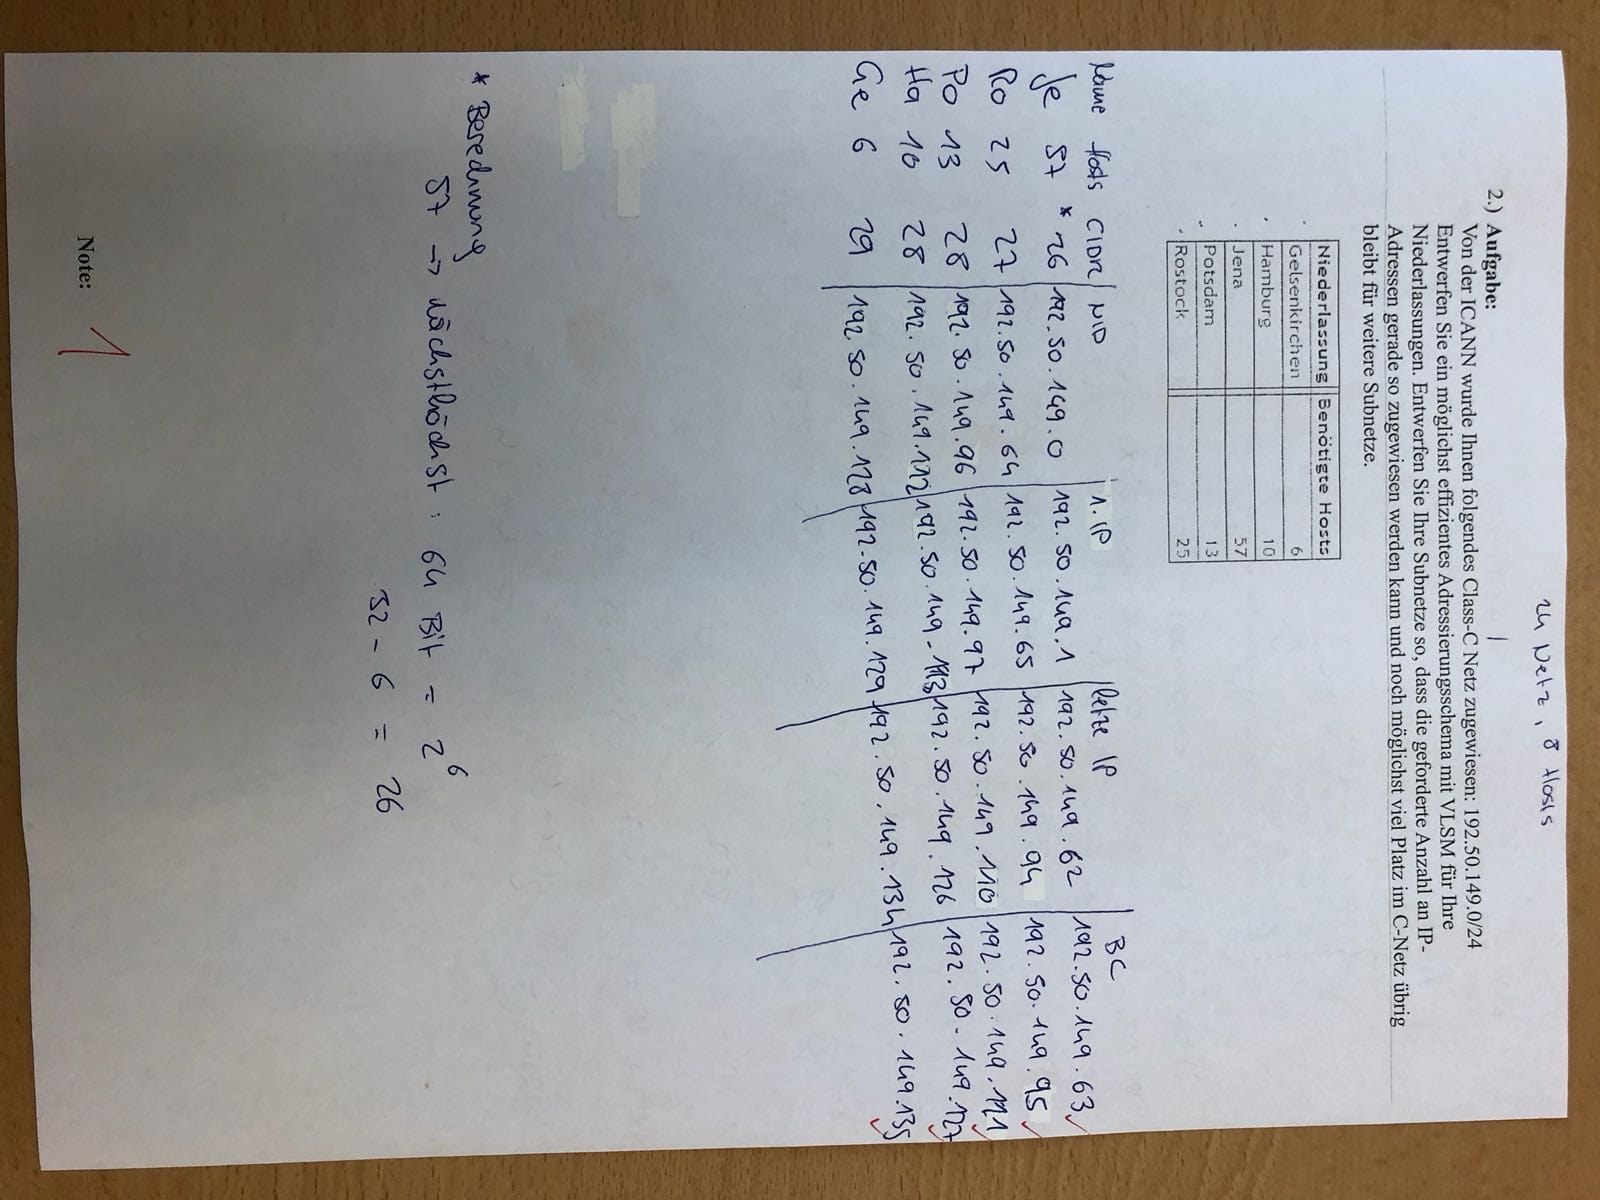 24 Netz, 8 Hosts
2.) Aufgabe:
Von der ICANN wurde Ihnen folgendes Class-C Netz zugewiesen: 192.50.149.0/24
Entwerfen Sie ein möglichst effizientes Adressierungsschema mit VLSM für Ihre
Niederlassungen. Entwerfen Sie Ihre Subnetze so, dass die geforderte Anzahl an IP-
Adressen gerade so zugewiesen werden kann und noch möglichst viel Platz im C-Netz übrig
bleibt für weitere Subnetze.
Niederlassung Benötigte Hosts
Gelsenkirchen 6
Hamburg 10
Jena 57
Potsdam 13
Rostock 25
Name Hosts CIDR NID 1. IP letze IP BC
Je 57 * 26 192.50.149.0 192.50.149.1 192.50.149.62 192.50.149.63
Ro 25 27 192.50.149.64 192.50.149.65 192.50.149.94 192.50.149.95
Po 13 28 192.50.149.96 192.50.149.97 192.50.149.110 192.50.149.111
Ha 10 28 192.50.149.112 192.50.149.113 192.50.149.126 192.50.149.127
Ge 6 29 192.50.149.128 192.50.149.129 192.50.149.134 192.50.149.135
* Berechnung
57 → nächsthöchst: 64 Bit = 2⁶
32 - 6 = 26
Note: 1